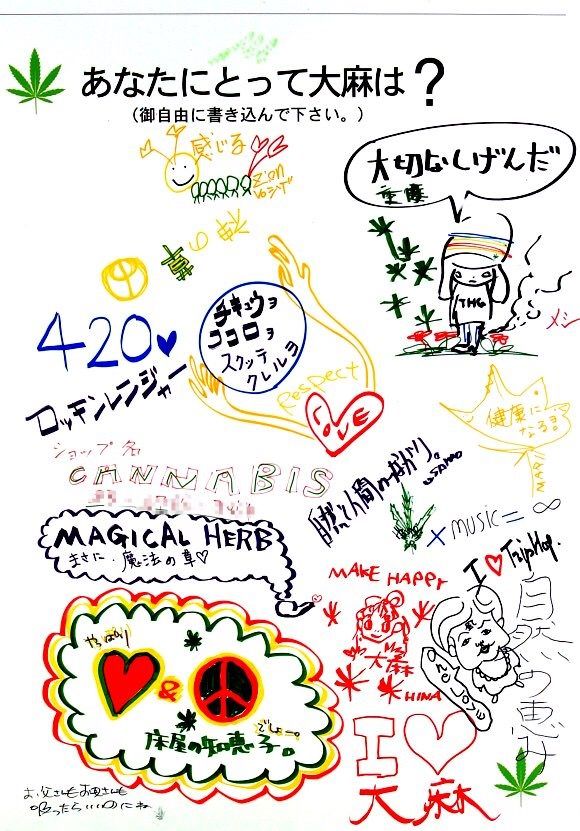 あなたにとって大麻は？
（御自由に書き込んで下さい。）
感じる
大切なしげんだ
THC
420
チキュウヲ
ココロヲ
スクッテ
クレルヨ
Respect
LOVE
ロッキンレンジャー
メシ
健康に
なる
ショップ名
CANNABIS
自然と人間のつながり。
+ MUSIC = ∞
MAGICAL HERB
まさに魔法の草♡
I ♥ TripHop.
MAKE HAPPY
大麻
HINA
自然の恵み
やっぱり
&
でしょー。
床屋の知恵 す。
I ♡
大麻
お父さんもお母さんも
吸ったらいいのにね